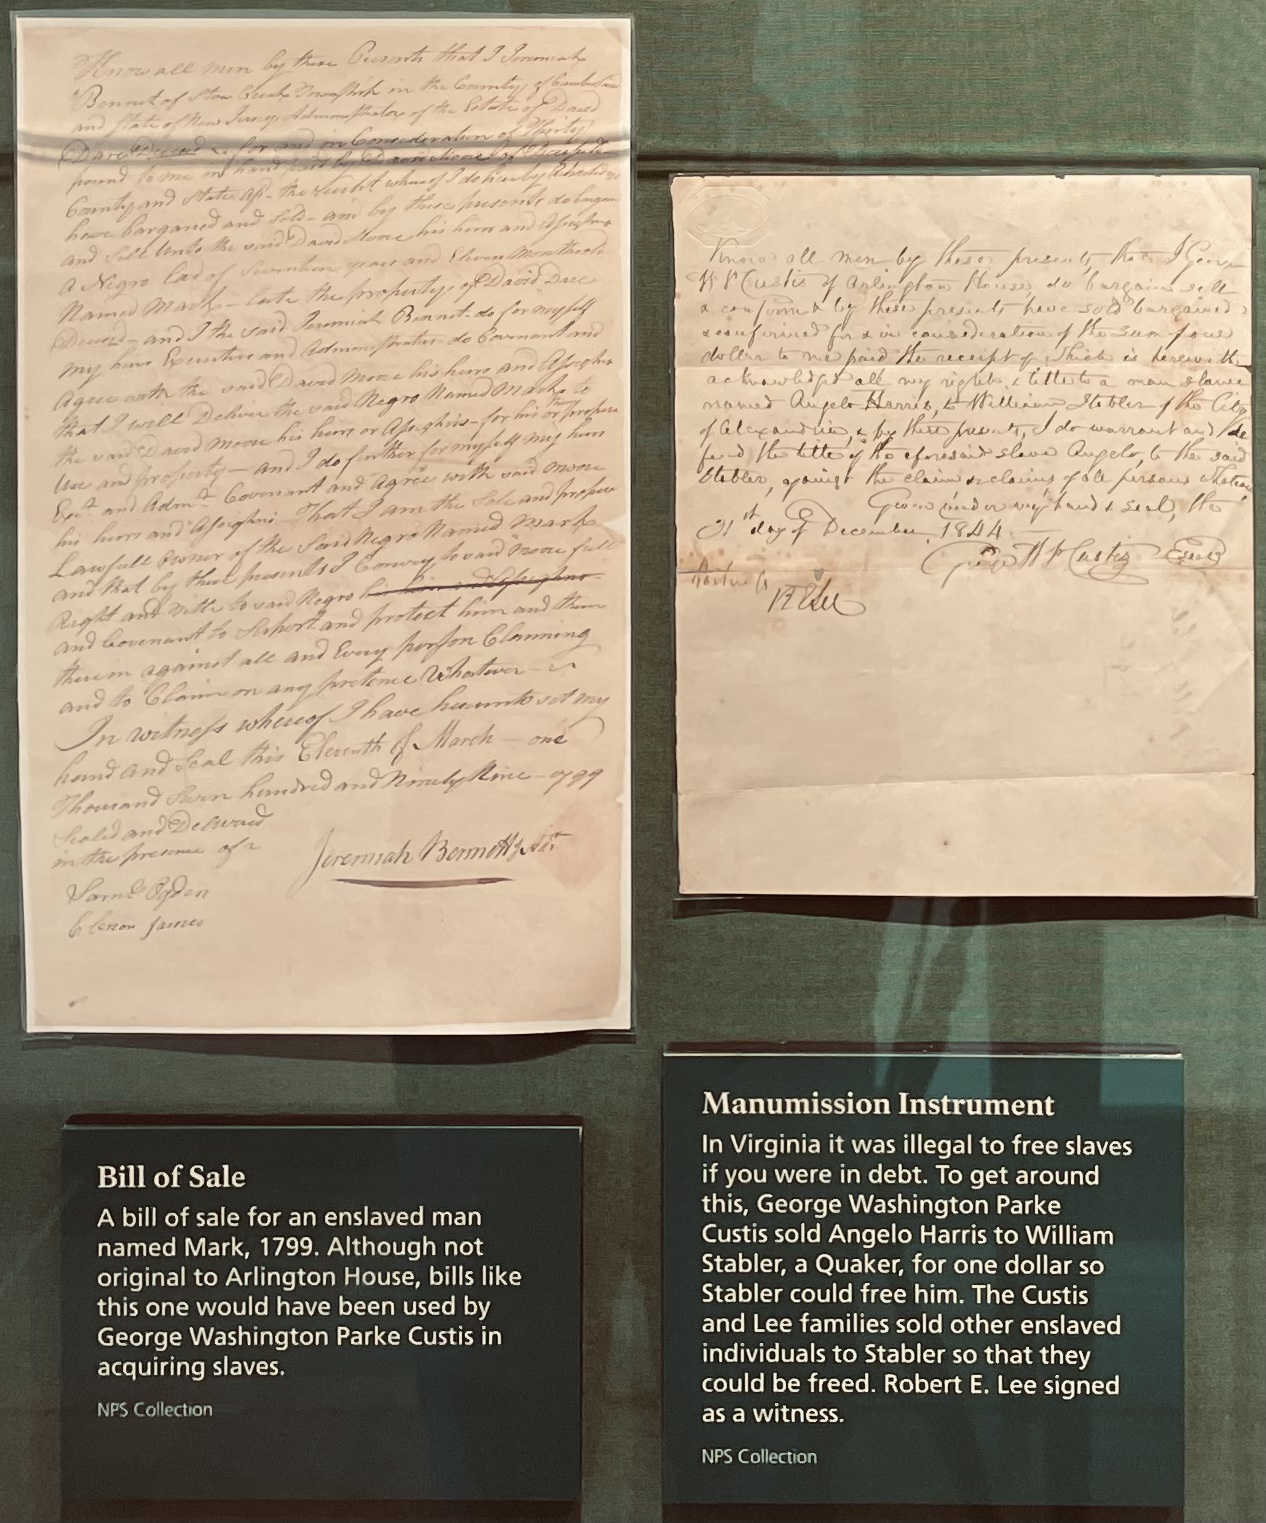 Know all men by these Presents that I Jeremiah
Bennet of Stow Creek Township in the County of Cumberland
and State of New Jersey Administrator of the Estate of David
Dare Deceased for and in Consideration of Thirty
pound to me in hand paid by David Moore of
County and State the receipt whereof I do hereby
have barganed and Sold and by these presents do bargan
and Sell Unto the said David Moore his heirs and Assighns
a Negro Lad of Seventeen years and Eleven Months old
Named Mark late the property of David Dare
Deceased and I the said Jeremiah Bennet do for myself
my heirs Executors and Administrators do Covenant and
Agree with the said David Moore his heirs and Assighns
that I will Deliver the said Negro Named Mark to
the said David Moore his heirs or Assighns for his or proper
Use and property and I do further for myself my heirs
Exrs and Admrs Covenant and Agree with said Moore
his heirs and Assighns That I am the Sole and proper
Lawfull Owner of the Said Negro Named Mark
and that by these presents I Convey to said Moore full
Right and Title to said Negro
and Covenant to Suport and protect him and them
therein against all and Every person Claiming
and to Claim on any pretence Whatever
In witness whereof I have hereunto set my
hand and Seal this Eleventh of March one
Thousand Seven hundred and Ninety Nine 1799
Sealed and Delivered
in the presence of
Jeremiah Bennett
Saml Ogden
James
Know all men by these presents, that I George
W P Custis of Arlington House do bargain sell
& confirm & by these presents have sold bargained
& confirmed for & in consideration of the sum of one
dollar to me paid the receipt of which is herewith
acknowledged all my right & title to a man slave
named Angelo Harris, to William Stabler of the City
of Alexandria, & by these presents, I do warrant and de
fend the title of the aforesaid slave Angelo, to the said
Stabler, against the claim & claims of all persons whatever
Given under my hand & seal, this
31st day of December, 1844
Geo W P Custis
R E Lee
Bill of Sale
A bill of sale for an enslaved man
named Mark, 1799. Although not
original to Arlington House, bills like
this one would have been used by
George Washington Parke Custis in
acquiring slaves.
NPS Collection
Manumission Instrument
In Virginia it was illegal to free slaves
if you were in debt. To get around
this, George Washington Parke
Custis sold Angelo Harris to William
Stabler, a Quaker, for one dollar so
Stabler could free him. The Custis
and Lee families sold other enslaved
individuals to Stabler so that they
could be freed. Robert E. Lee signed
as a witness.
NPS Collection